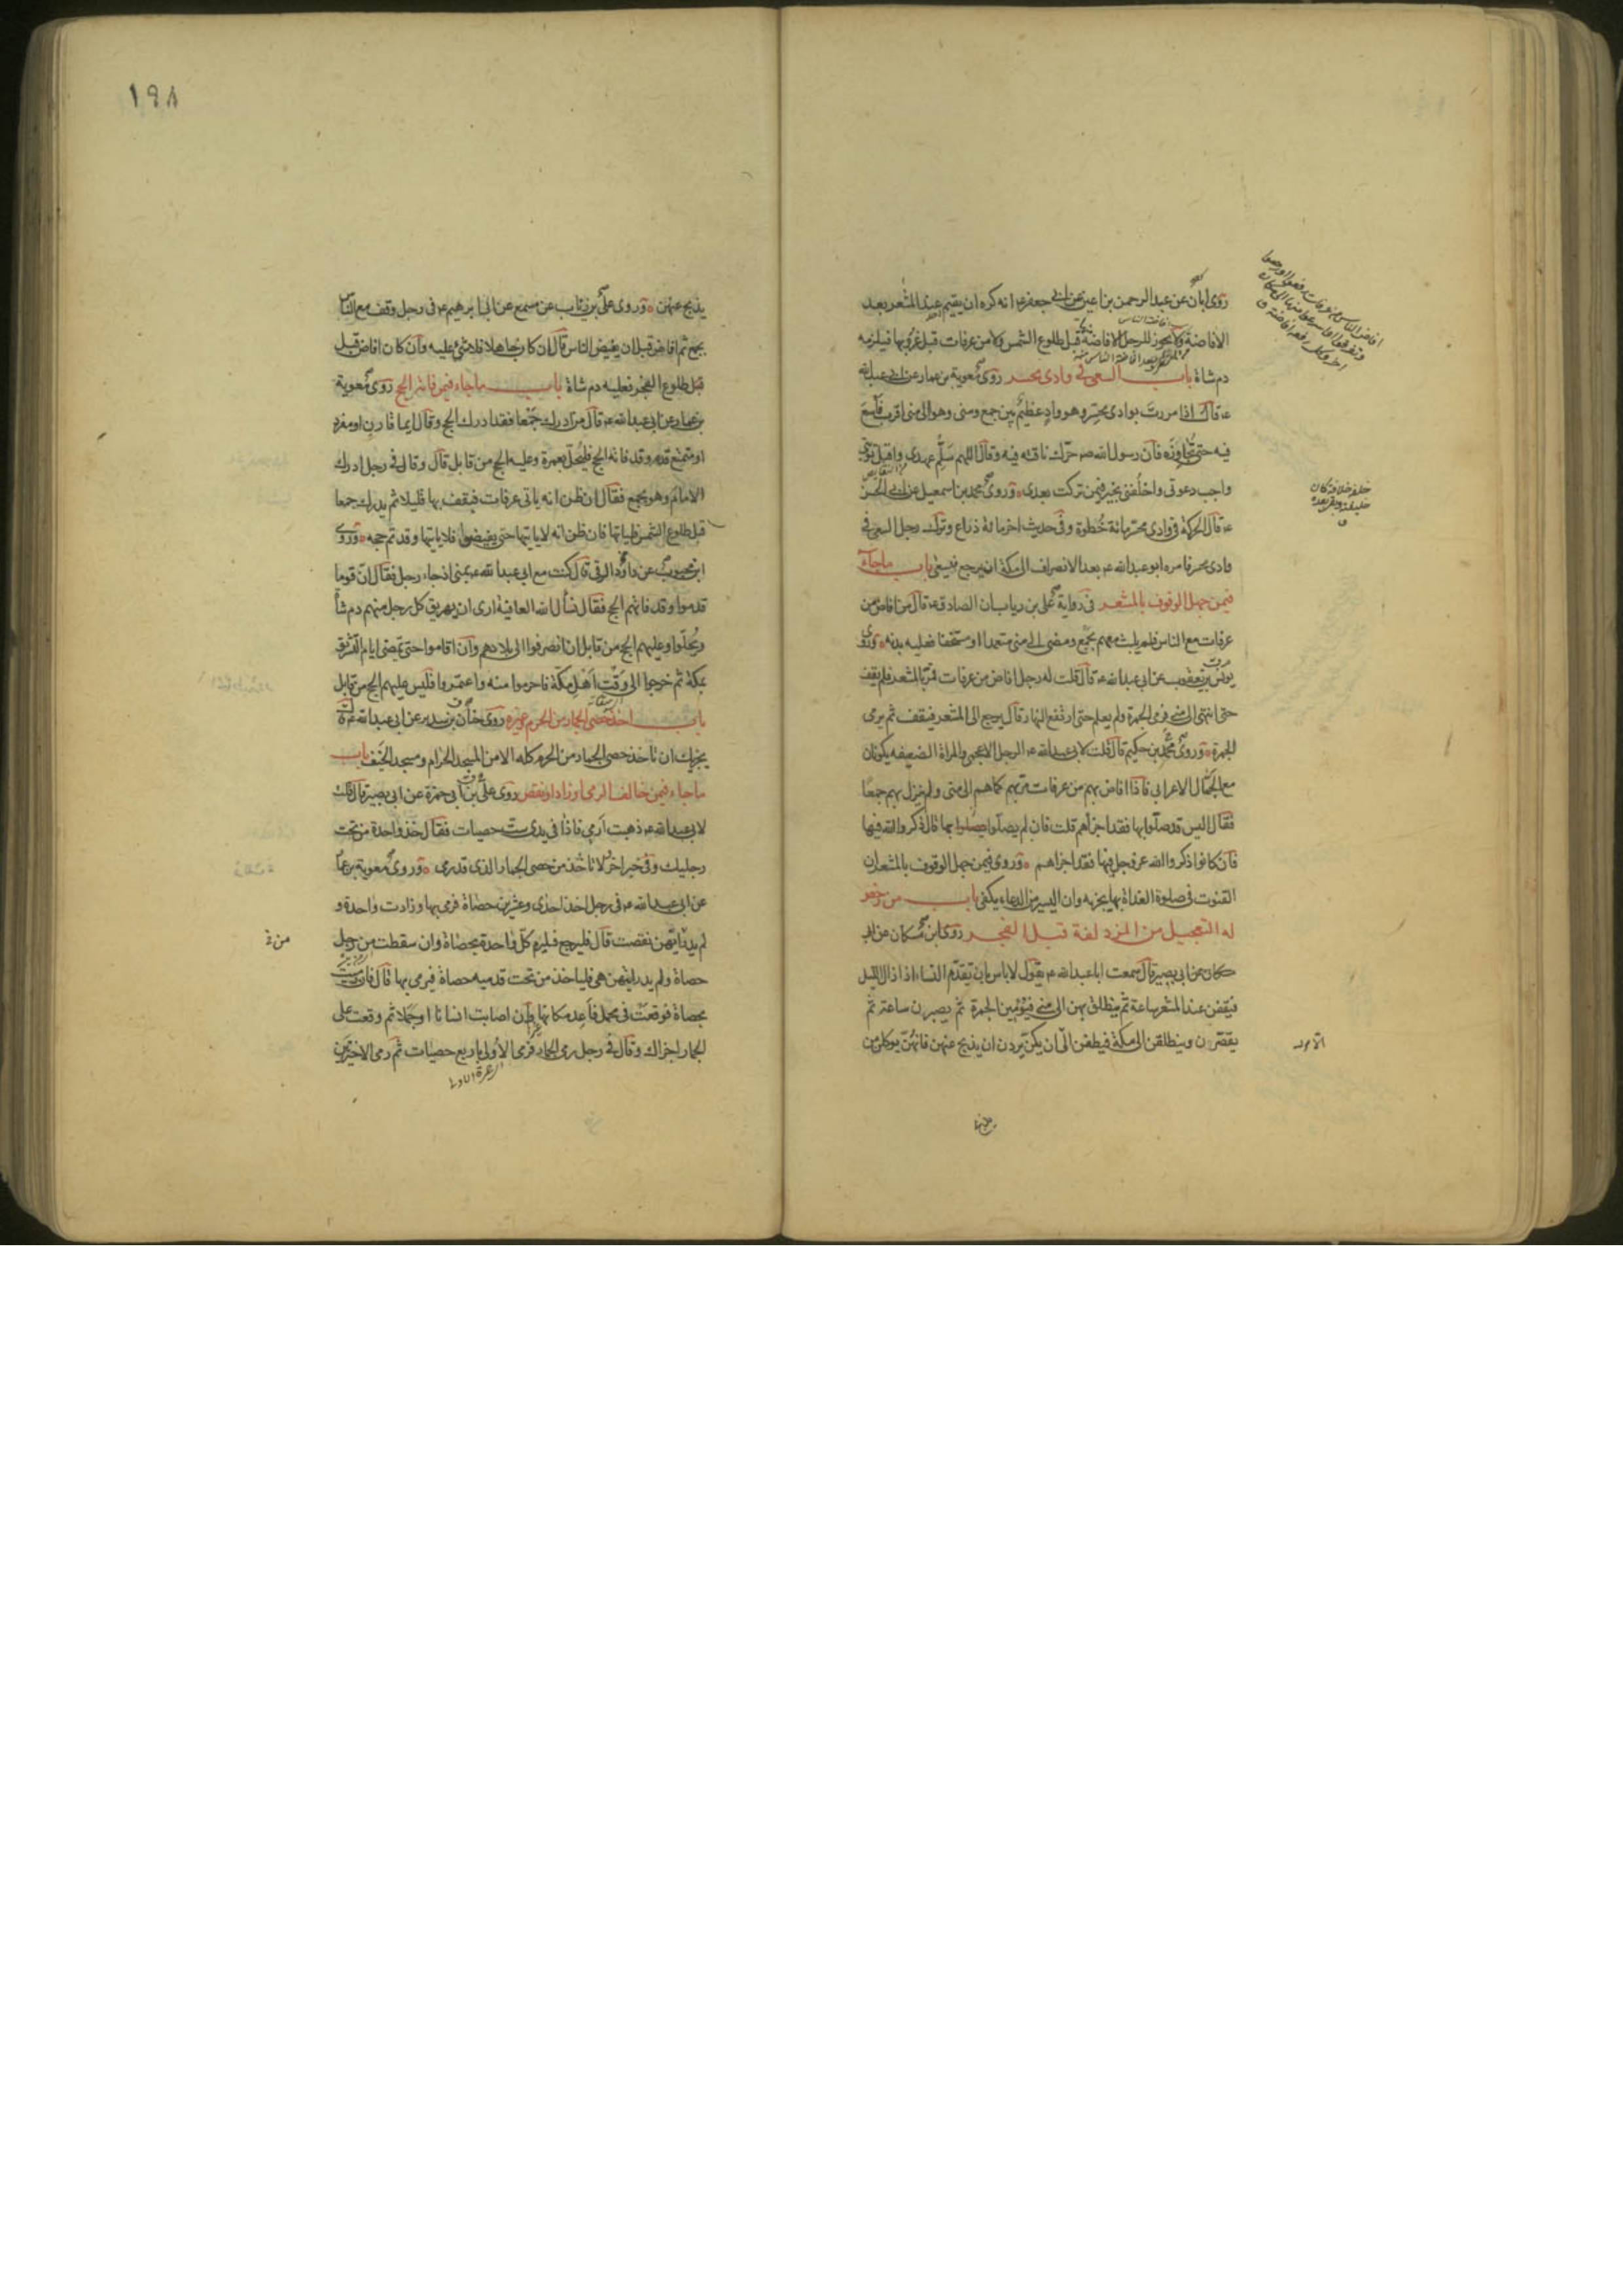 روى ابان عن عبد الرحمن بن اعين عن ابى جعفر ع انه كره ان يقيم عند المشعر بعد
الافاضة ولا يجوز للرجل الافاضة قبل طلوع الشمس ولا من عرفات قبل غروبها فيلزمه
دم شاة باب السعى فى وادى محسر روى معوية بن عمار عن ابى عبد الله
ع قال اذا مررت بوادى محسر وهو واد عظيم بين جمع ومنى وهو الى منى اقرب فاسع
فيه حتى تجاوزه فان رسول الله ص حرك ناقته فيه وقال اللهم سلم عهدى واقبل توبتى
واجب دعوتى واخلفنى بخير فيمن تركت بعدى وروى محمد بن اسمعيل عن ابى الحسن
ع قال الحركة فى وادى محسر مائة خطوة وفى حديث اخر مائة ذراع وترك رجل السعى فى
وادى محسر فامره ابو عبد الله ع بعد الانصراف الى مكة ان يرجع فيسعى باب ما جاء
فيمن جهل الوقوف بالمشعر فى رواية على بن رياب ان الصادق ع قال من افاض من
عرفات مع الناس فلم يلبث معهم بجمع ومضى الى منى متعمدا او مستخفا فعليه بدنه وروى
يونس بن يعقوب عن ابى عبد الله ع قال قلت له رجل افاض من عرفات فمر بالمشعر فلم يقف
حتى انتهى الى منى فرمى الجمرة ولم يعلم حتى ارتفع النهار قال يرجع الى المشعر فيقف ثم يرمى
الجمرة وروى محمد بن حكيم قال قلت لابى عبد الله ع الرجل الاعجمى والمراة الضعيفه يكونان
مع الجمال الاعرابى فاذا افاض بهم من عرفات مر بهم كما هم الى منى ولم ينزل بهم جمعا
فقال اليس قد صلوا بها فقد اجزاهم قلت فان لم يصلوا بها قال ذكروا الله فيها
فان كانوا ذكروا الله عز وجل فيها فقد اجزاهم وروى فيمن جهل الوقوف بالمشعر ان
القنوت فى صلوة الغداة بها يجزيه وان اليسير من الدعاء يكفى باب من رخص
له التعجيل من المزدلفة قبل الفجر روى ابن مسكان عن ابى
عن ابى بصير قال سمعت ابا عبد الله ع يقول لا باس بان تقدم النساء اذا زال الليل
فيقفن عند المشعر ساعة ثم ينطلق بهن الى منى فيرمين الجمرة ثم يصبرن ساعة ثم
يقصرن وينطلقن الى مكة فيطفن الا ان يكن يردن ان يذبح عنهن فانهن يوكلن من
١٩٨
يذبح عنهن وروى على بن رئاب عن مسمع عن ابى ابرهيم ع فى رجل وقف مع الناس
بجمع ثم افاض قبل ان يفيض الناس قال ان كان جاهلا فلا شئ عليه وان كان افاض قبل
قبل طلوع الفجر فعليه دم شاة باب ما جاء فيمن فاته الحج روى معوية
بن عمار عن ابى عبد الله ع قال من ادرك جمعا فقد ادرك الحج وقال ايما قارن او مفرد
او متمتع قدم وقد فاته الحج فليحل بعمرة وعليه الحج من قابل قال وقال فى رجل ادرك
الامام وهو بجمع فقال ان ظن انه ياتى عرفات فيقف بها قليلا ثم يدرك جمعا
قبل طلوع الشمس فلياتها فان ظن انه لا ياتيها حتى يفيضوا فلا ياتها وقد تم حجه وروى
ابن محبوب عن داود الرقى قال كنت مع ابى عبد الله ع بمنى اذ جاء رجل فقال ان قوما
قدموا وقد فاتهم الحج فقال نسأل الله العافية ارى ان يهريق كل رجل منهم دم شاة
ويحلوا وعليهم الحج من قابل ان انصرفوا الى بلادهم وان اقاموا حتى تمضى ايام التشريق
بمكة ثم خرجوا الى وقت اهل مكة فاحرموا منه واعتمروا فليس عليهم الحج من قابل
باب اخذ حصى الجمار من الحرم وغيره روى حنان بن سدير عن ابى عبد الله ع قال
يجزيك ان تاخذ حصى الجمار من الحرم كله الا من المسجد الحرام ومسجد الخيف باب
ما جاء فيمن خالف الرمى او زاد او نقص روى على بن ابى حمزة عن ابى بصير قال قلت
لابى عبد الله ع ذهبت ارمى فاذا فى يدى ست حصيات فقال خذ واحدة من تحت
رجليك وفى خبر اخر لا تاخذ من حصى الجمار الذى قد رمى وروى معوية بن عمار
عن ابى عبد الله ع فى رجل اخذ احدى وعشرين حصاة فرمى بها وزادت واحدة و
لم يدر ايتهن نقصت قال فليرجع فليرم كل واحدة بحصاة وان سقطت من رجل
حصاة ولم يدر ايتهن هى فلياخذ من تحت قدميه حصاة فيرمى بها قال فان رميت
بحصاة فوقعت فى محمل فاعد مكانها وان اصابت انسانا او جملا ثم وقعت على
الجمار اجزاك وقال فى رجل رمى الجمار فرمى الاولى باربع حصيات ثم رمى الاخيرتين